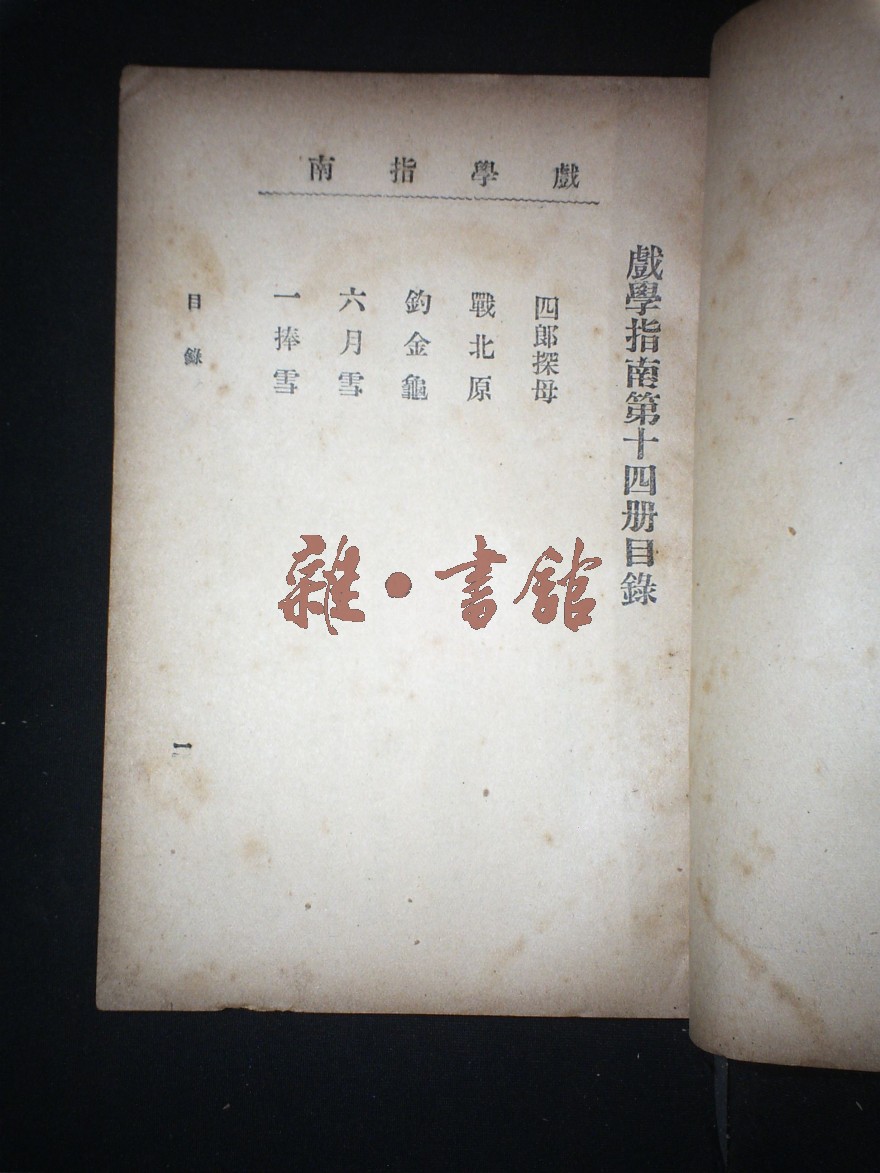 戲學指南
戲學指南第十四册目錄
四郎探母
戰北原
釣金龜
六月雪
一捧雪
目錄
一
雜・書館